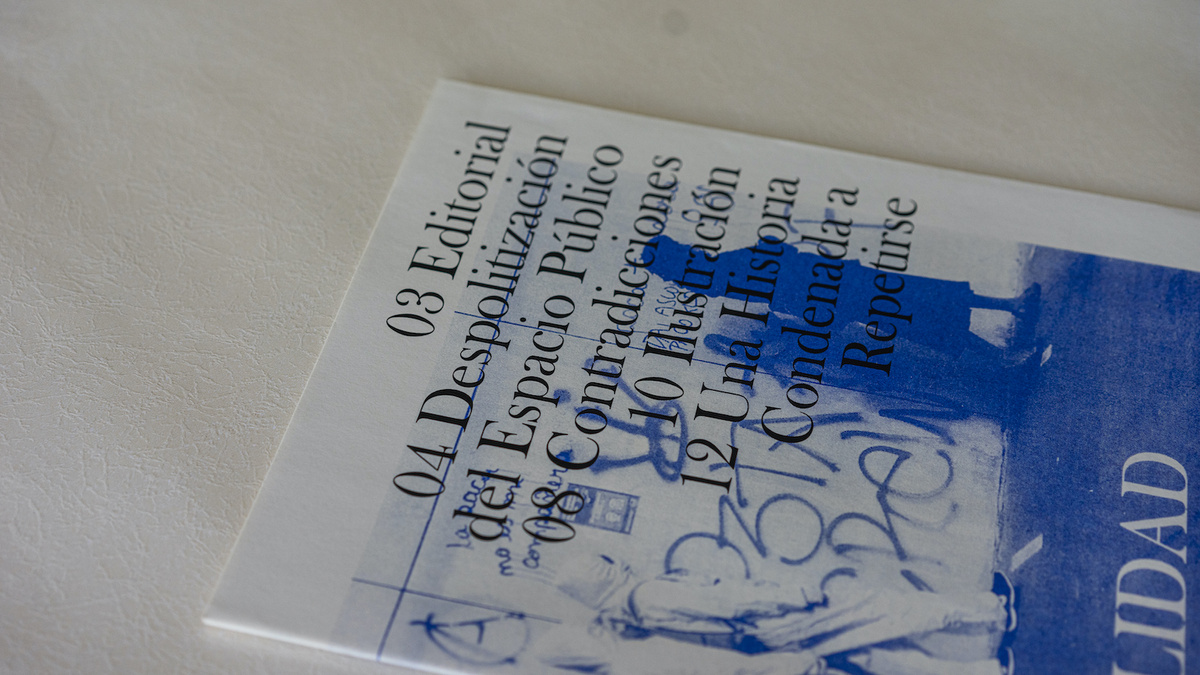 03 Editorial
04 Despolitización
del Espacio Público
08 Contradicciones
10 Ilustración
12 Una Historia
Condenada a
Repetirse
LIDAD